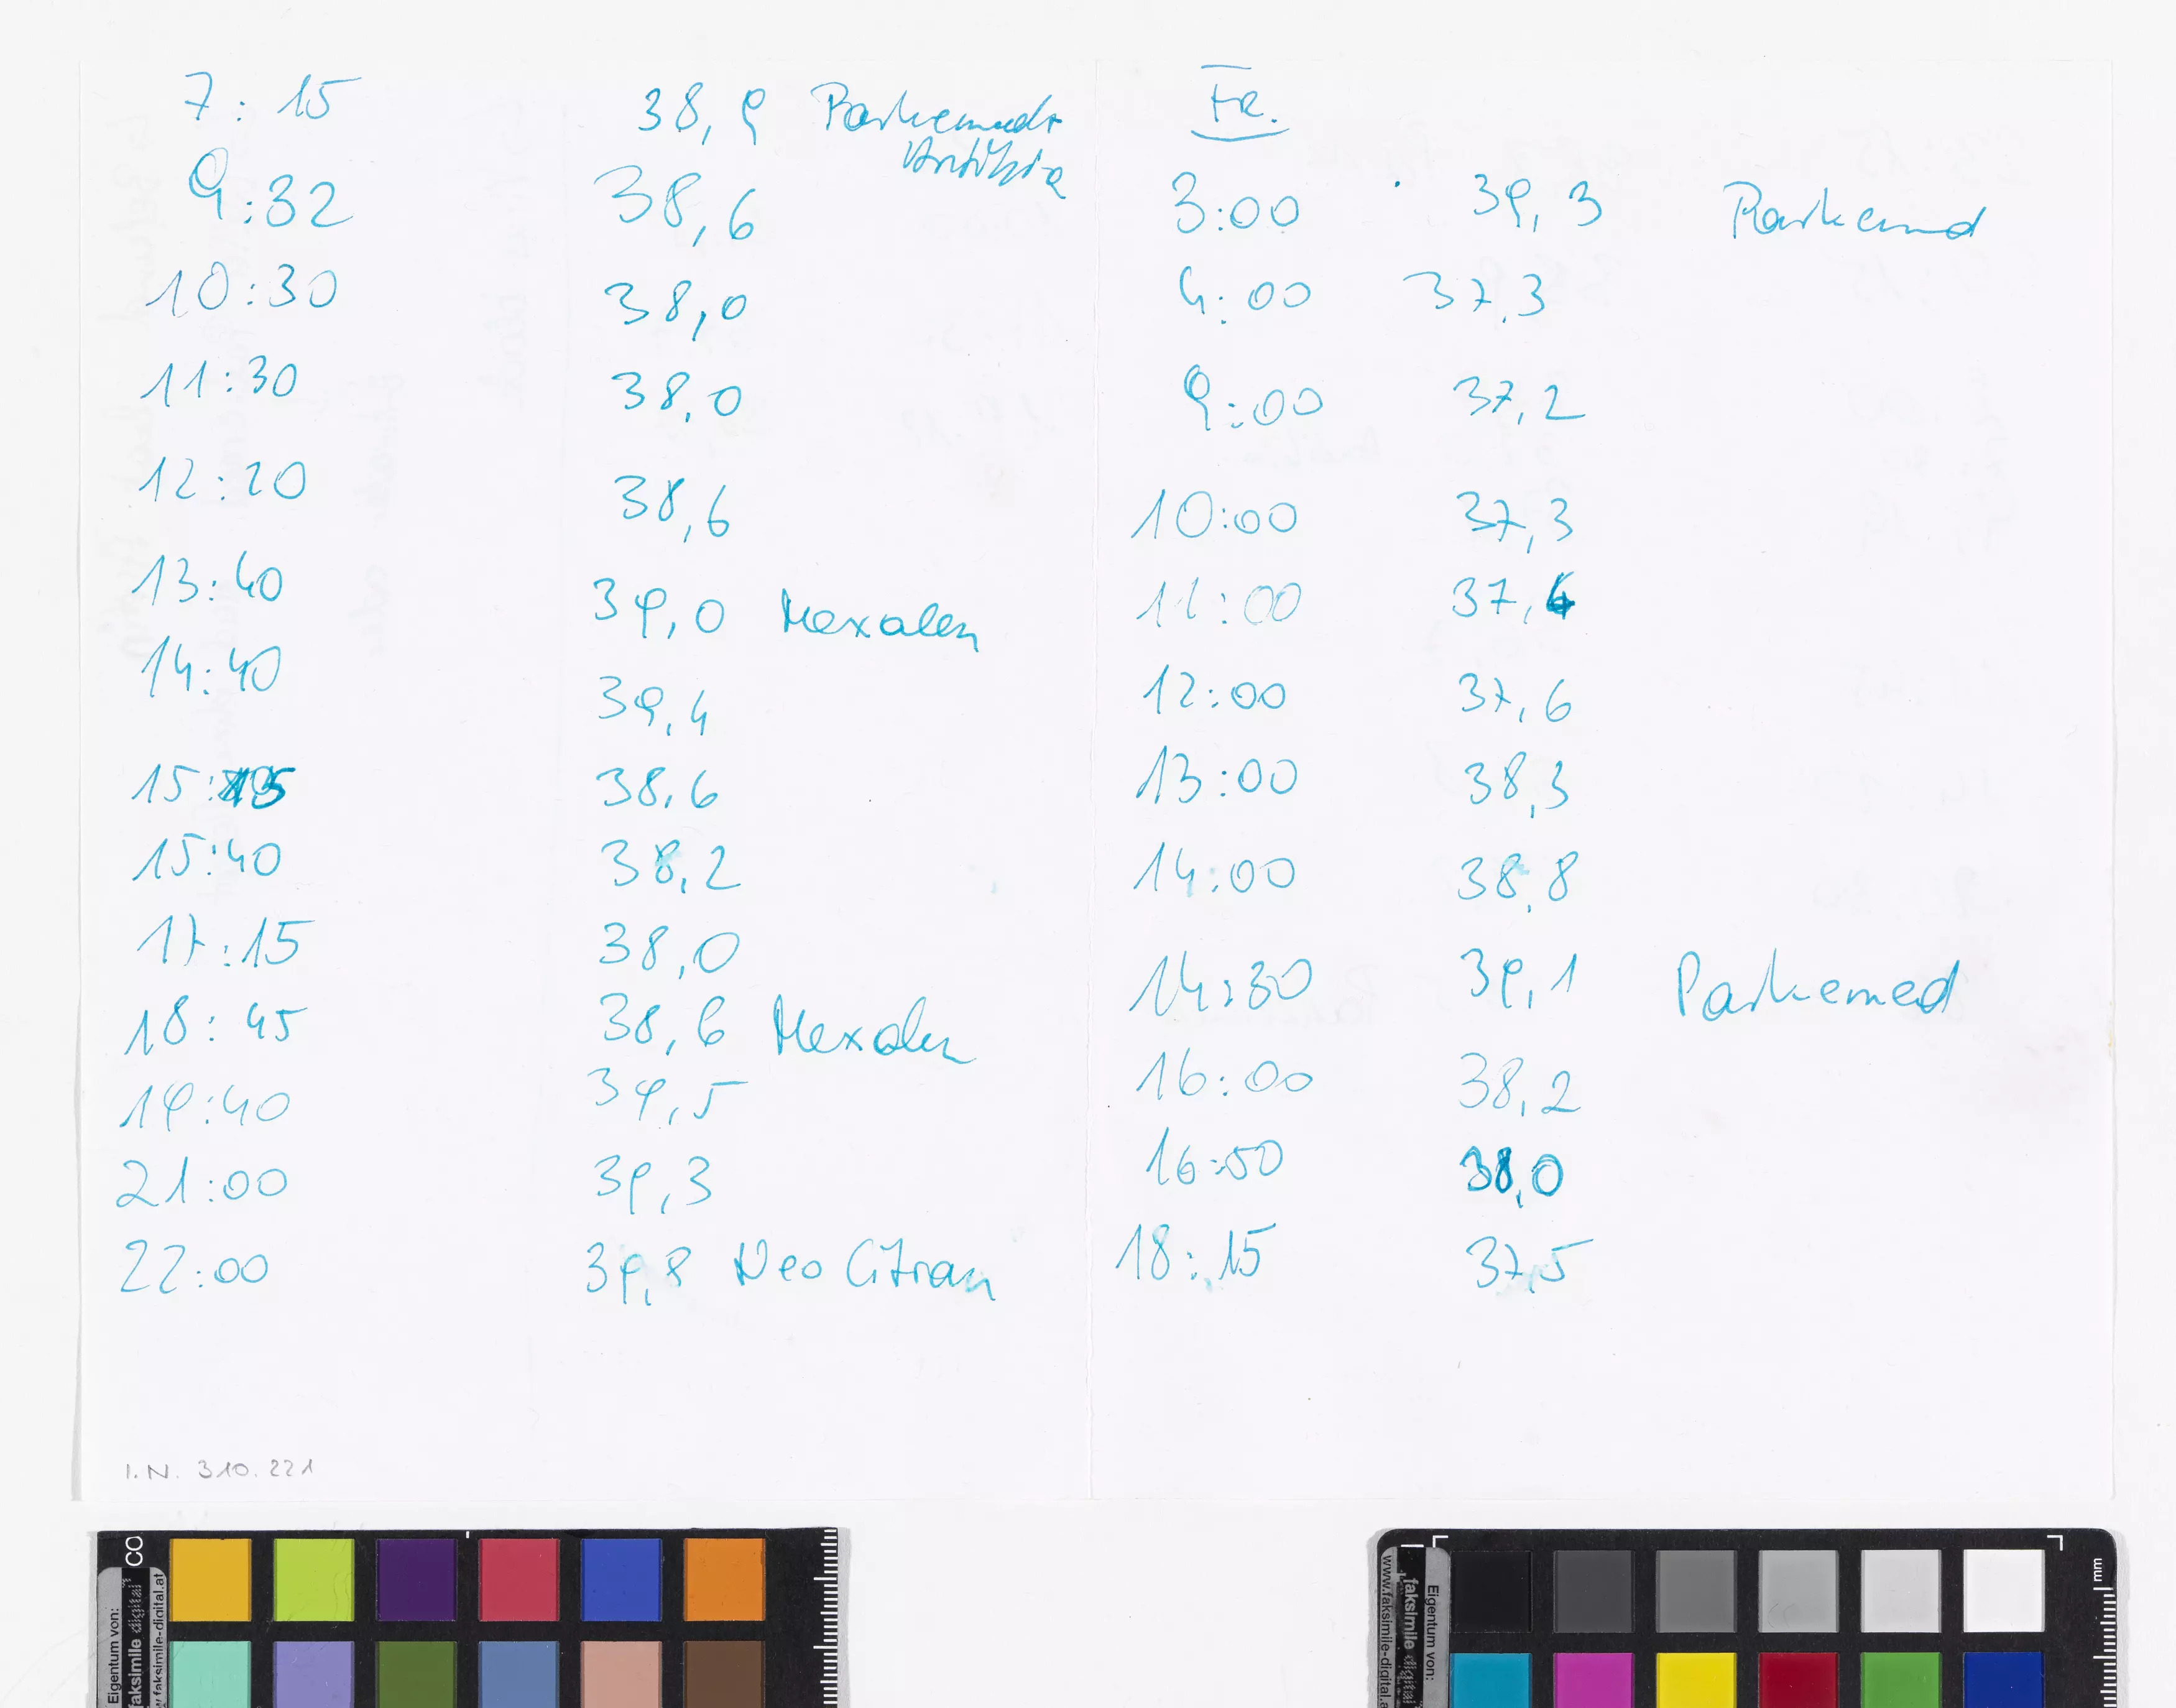 7:15 38,9 Parkemed+
Antibio
9:32 38,6
10:30 38,0
11:30 38,0
12:20 38,6
13:40 39,0 Mexalen
14:40 39,4
15:15 38,6
15:40 38,2
17:15 38,0
18:45 38,6 Mexalen
19:40 39,5
21:00 39,3
22:00 39,8 Neo Citran
I.N. 310.221
Fr.
3:00 39,3 Parkemed
4:00 37,3
9:00 37,2
10:00 37,3
11:00 37,4
12:00 37,6
13:00 38,3
14:00 38,8
14:30 39,1 Parkemed
16:00 38,2
16:50 38,0
18:15 37,5
CO
Eigentum von:
faksimile digital
www.faksimile-digital.at
Eigentum von:
faksimile digital
mm